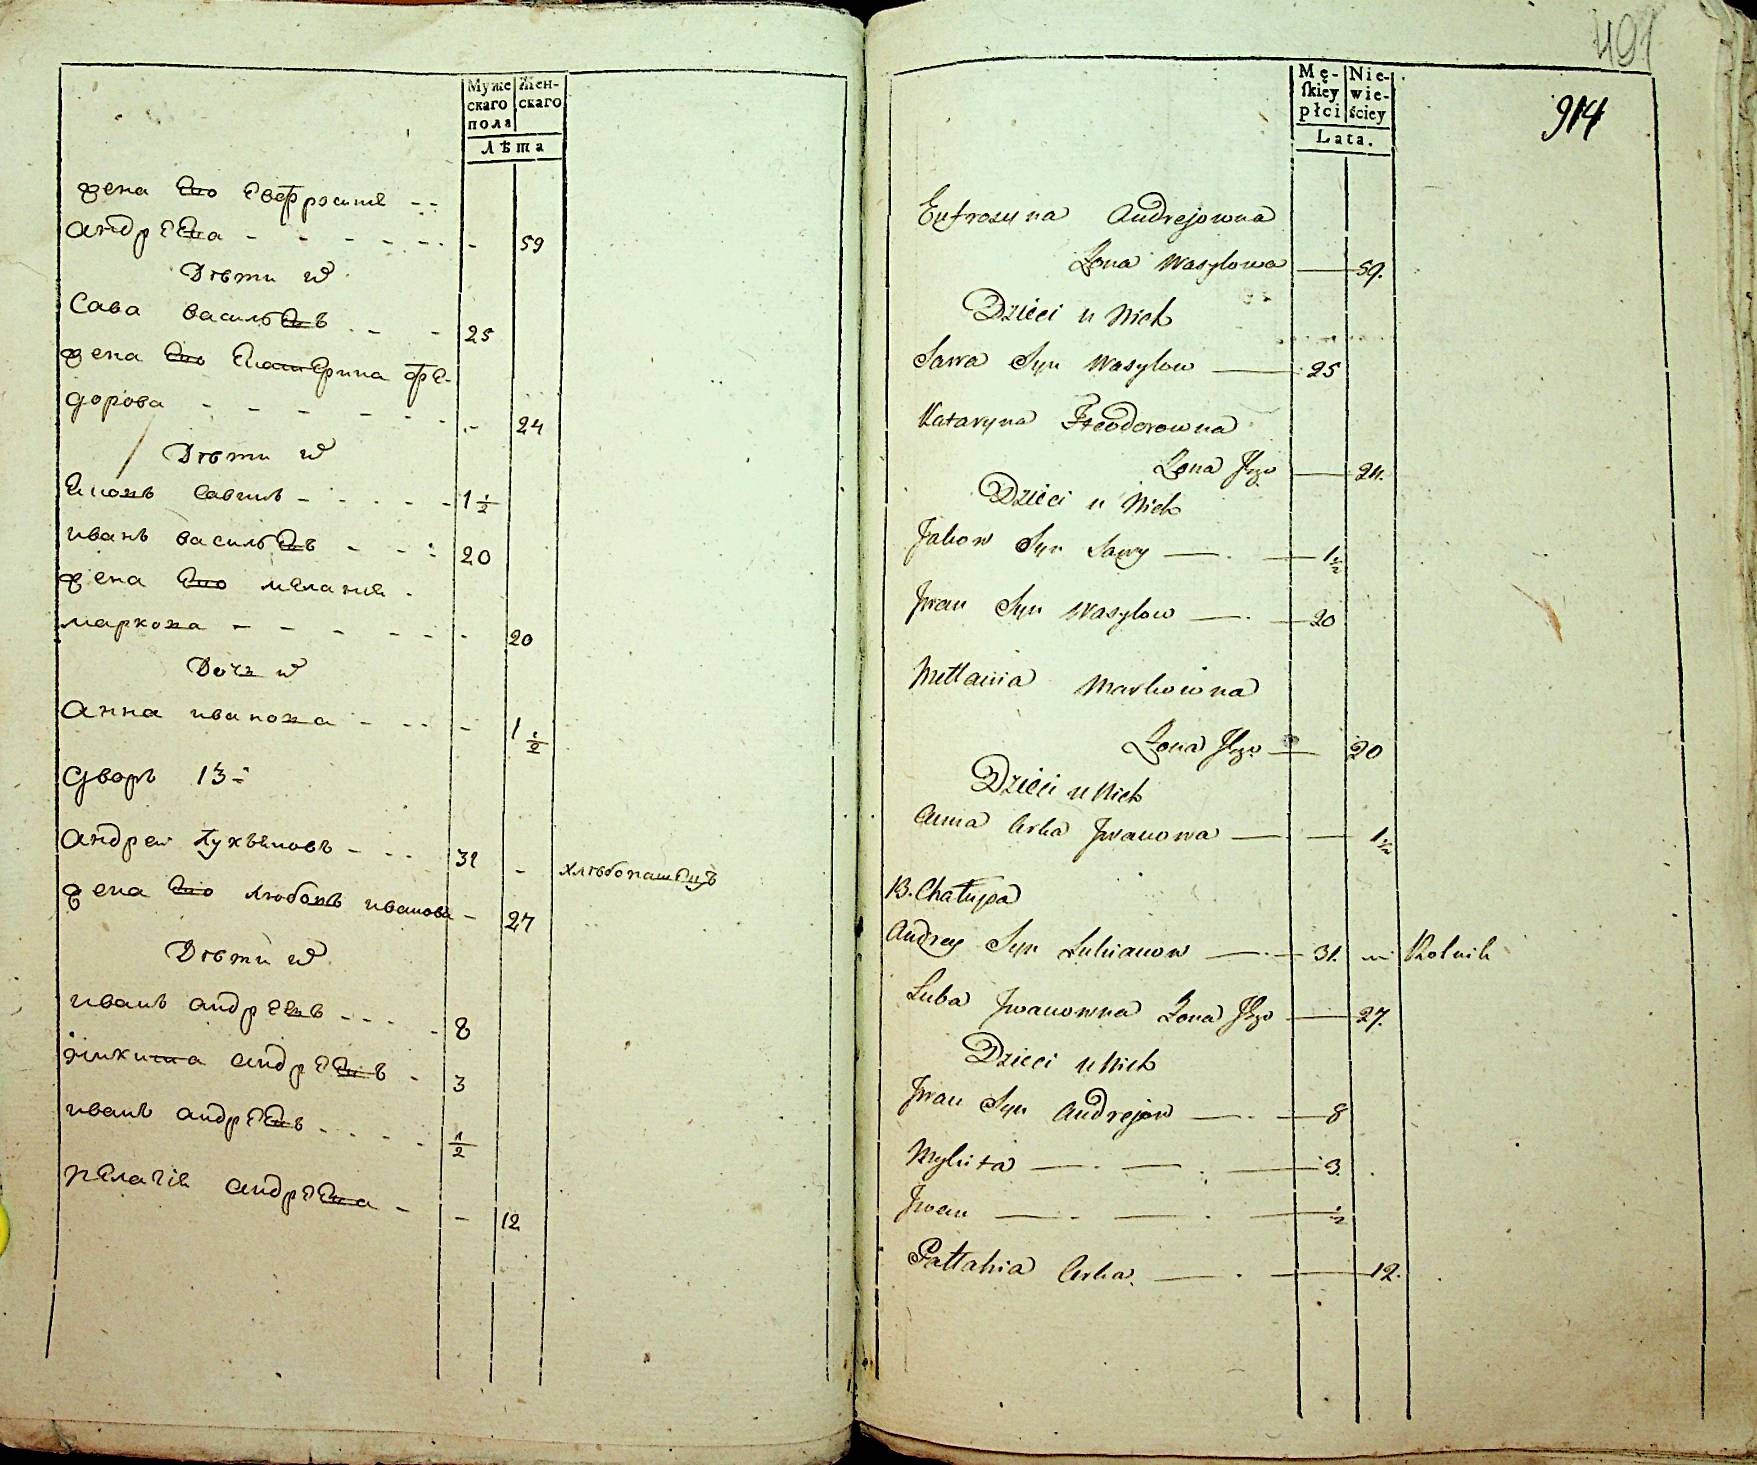 Муже
скаго
пола
Жен-
скаго
Лѣта
жена Его Евфросинѣ
андрѣЕва - - - - - - 59
Дѣти ихъ
Сава васильЕвъ - - 25
жена Его ЕкатЕрина фЕ-
дорова - - - - - - 24
Дѣти ихъ
Савинъ - - - - - 1 1/2
иванъ васильЕвъ - - - 20
жена Его мЕланиѣ
маркова - - - - - - 20
Дочь ихъ
анна иванова - - - - 1 1/2
дворъ 13-й
андреи лукъяновъ - - - 31 - хлѣбопашЕцъ
жена Его любовъ иванова - 27
Дѣти ихъ
иванъ андрЕЕвъ - - - - 8
микита андрЕЕвъ - 3
иванъ андрЕЕвъ - - - - 1/2
пЕлагiѣ андрЕЕва - - 12
491
914
Mę-
skiey
płci
Nie-
wie-
ściey
Lata.
Eufrozyna Andrejowna
Żona Wasylowa — 59.
Dzieci u Nich
Sawa Syn Wasylow — 25
Kataryna Fteodorowna
Żona Jego — 24.
Dzieci u Nich
Jakow Syn Sawy — . — 1 1/2
Jwan Syn Wasylow — . — 20
Mełłania Markowna
Żona Jego — 20
Dzieci u Nich
Anna Corka Jwanowa — — 1 1/2
13. Chałupa
Andrey Syn Lukianow — . — 31. Rolnik
Luba Jwanowna Żona Jego — 27.
Dzieci u Nich
Jwan Syn Andrejow — . — 8
Mykita — . — . — 3.
Jwan — . — . — 1/2
Pałłahia Corka. — . — 12.